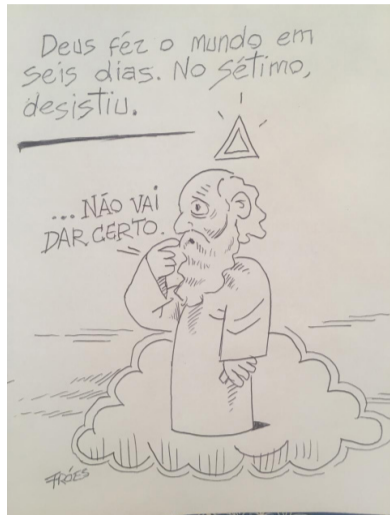 Deus féz o mundo em
seis dias. No sétimo,
desistiu.
...NÃO VAI
DAR CERTO.
FRÓES